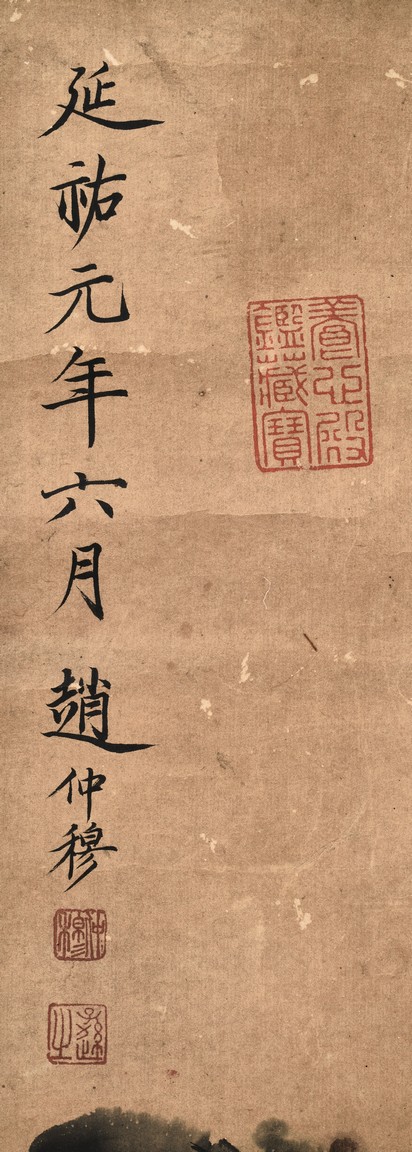 養心殿
鑑藏寶
延祐元年六月 趙仲穆
仲穆